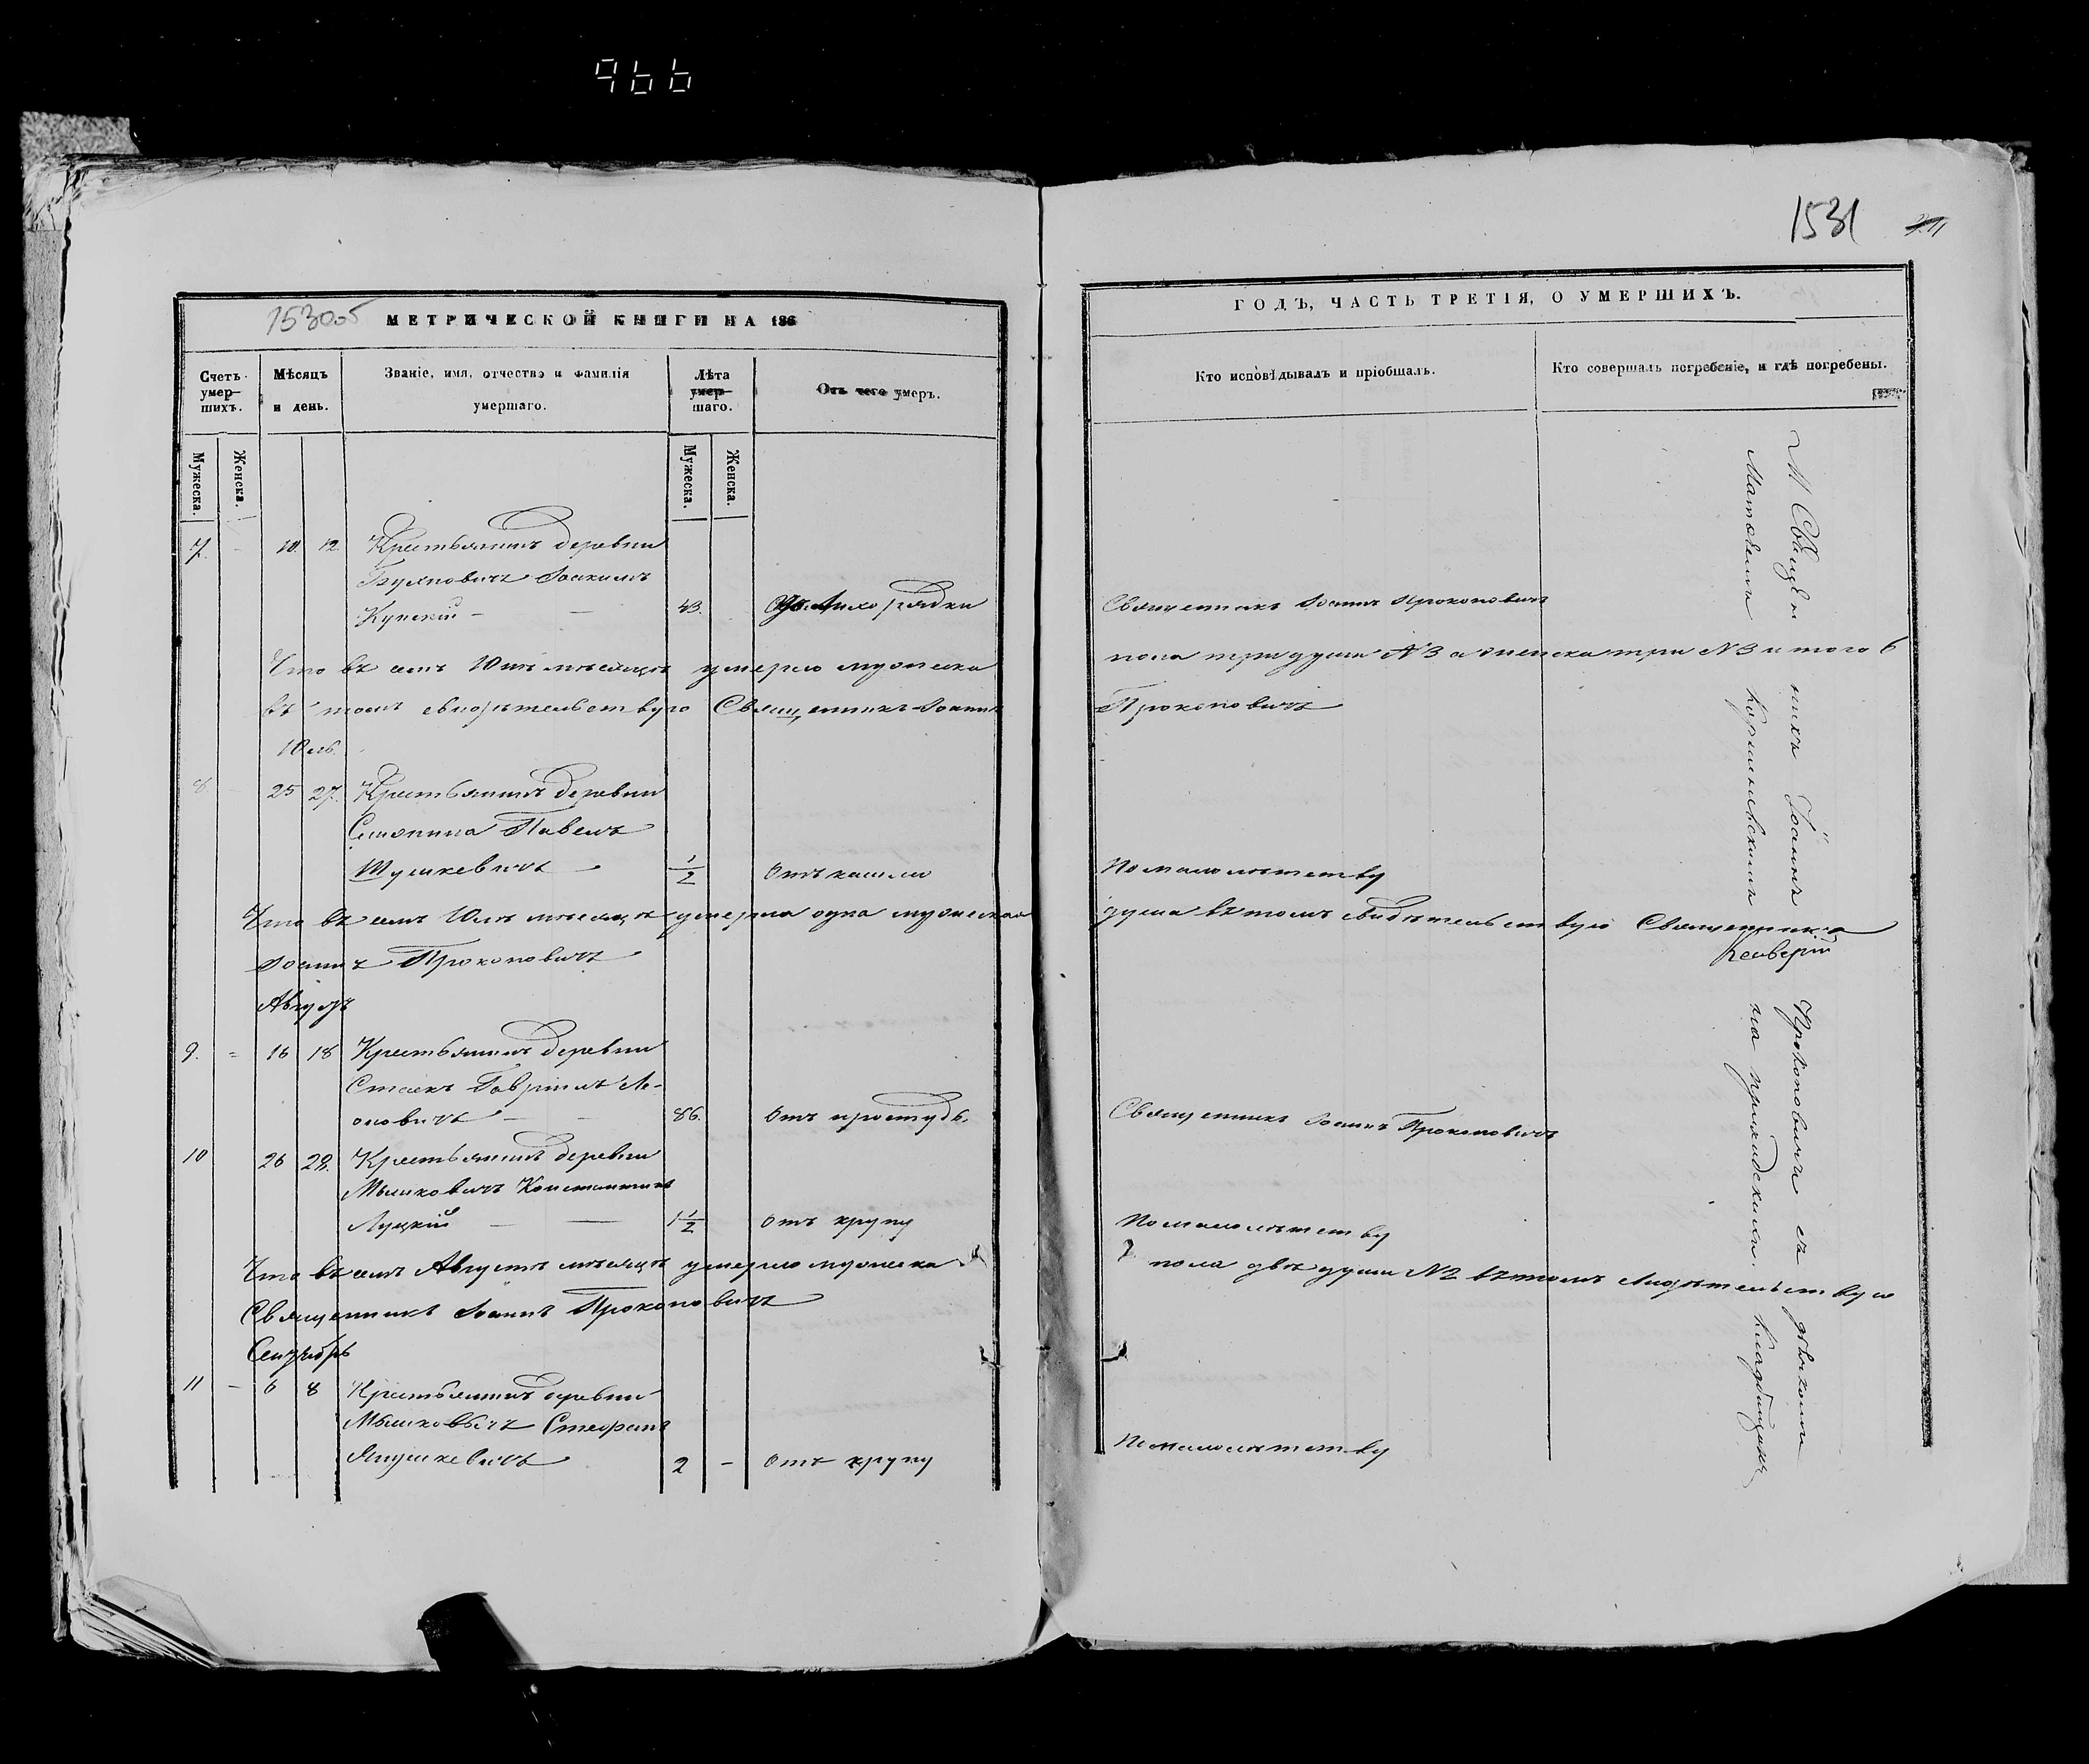 966
1531
1530об
МЕТРИЧЕСКОЙ КНИГИ НА 186
ГОДЪ, ЧАСТЬ ТРЕТІЯ, О УМЕРШИХЪ.
Счетъ умер-
шихъ.
Мѣсяцъ
и день.
Званіе, имя, отчество и фамилія
умершаго.
Лѣта
умер-
шаго.
Отъ чего умеръ.
Кто исповѣдывалъ и пріобщалъ.
Кто совершалъ погребеніе, и гдѣ погребены.
Мужеска.
Женска.
Мужеска.
Женска.
7. - 10. 12. Крестьянинъ деревни
Іоакимъ
43. Лихорадки Священникъ Іоаннъ Прокоповичъ
Что въ семъ Юнѣ мѣсяцѣ умерло мужеска пола три души №3 а женска три №3 итого 6
въ томъ свидѣтельствую Священникъ Іоаннъ Прокоповичъ
Юль.
8 - 25 27. Крестьянинъ деревни
Павелъ
Шушкевичъ 1/2 Отъ кашлю По малолѣтству
Что въ семъ Юлѣ мѣсяцѣ умерла одна мужеская душа въ томъ свидѣтельствую Священникъ
Іоаннъ Прокоповичъ
Августъ
9. = 16 18 Крестьянинъ деревни
Гавріилъ
86. Отъ простуды. Священникъ Іоаннъ Прокоповичъ
10 26 28. Крестьянинъ деревни
Мышковичъ Константинъ
Луцкій 1 1/2 Отъ крупу По малолѣтству
Что въ семъ Августѣ мѣсяцѣ умерло мужеска пола двѣ души №2 въ томъ свидѣтельствую
Священникъ Іоаннъ Прокоповичъ
Сентябрь
11 - 6 8 Крестьянинъ деревни
Мышковичъ Стефанъ
Янушкевичъ 2 - Отъ крупу По малолѣтству
Священникъ Іоаннъ Прокоповичъ съ дьячкомъ
на приходскимъ кладбищѣ